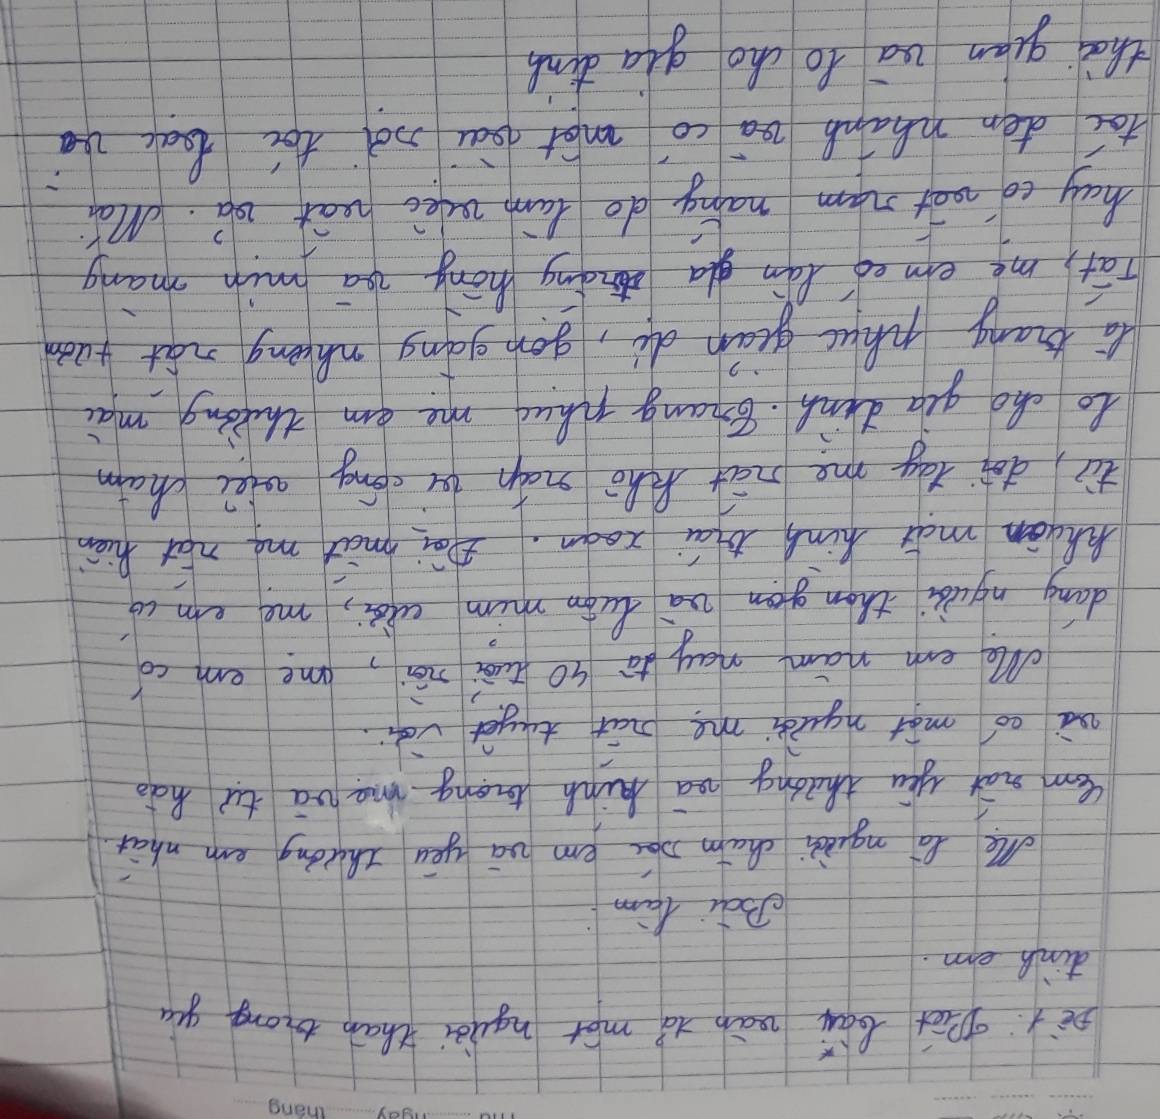 Thứ ngày tháng
Đề 1: Viết bài văn tả một người thân trong gia
đình em.
Bài làm
Mẹ là người chăm sóc em và yêu thương em nhất.
Em rất yêu thương và kính trọng mẹ và tự hào
vì có một người mẹ rất tuyệt vời.
Mẹ em năm nay đã 40 tuổi rồi, mẹ em có
dáng người thon gọn và luôn mỉm cười, mẹ em có
khuôn mặt hình trái xoan. Đôi mắt mẹ rất hiền
từ, đôi tay mẹ rất khô ráp vì công việc chăm
lo cho gia đình. Trang phục mẹ em thường mặc
là trang phục giản dị, gọn gàng nhưng rất tươm
Tất, mẹ em có làn da trắng hồng và mịn màng
hay có vết nám nắng do làm việc vất vả. Mái
tóc đen nhánh và có một vài sợi tóc bạc vì
thời gian và lo cho gia đình